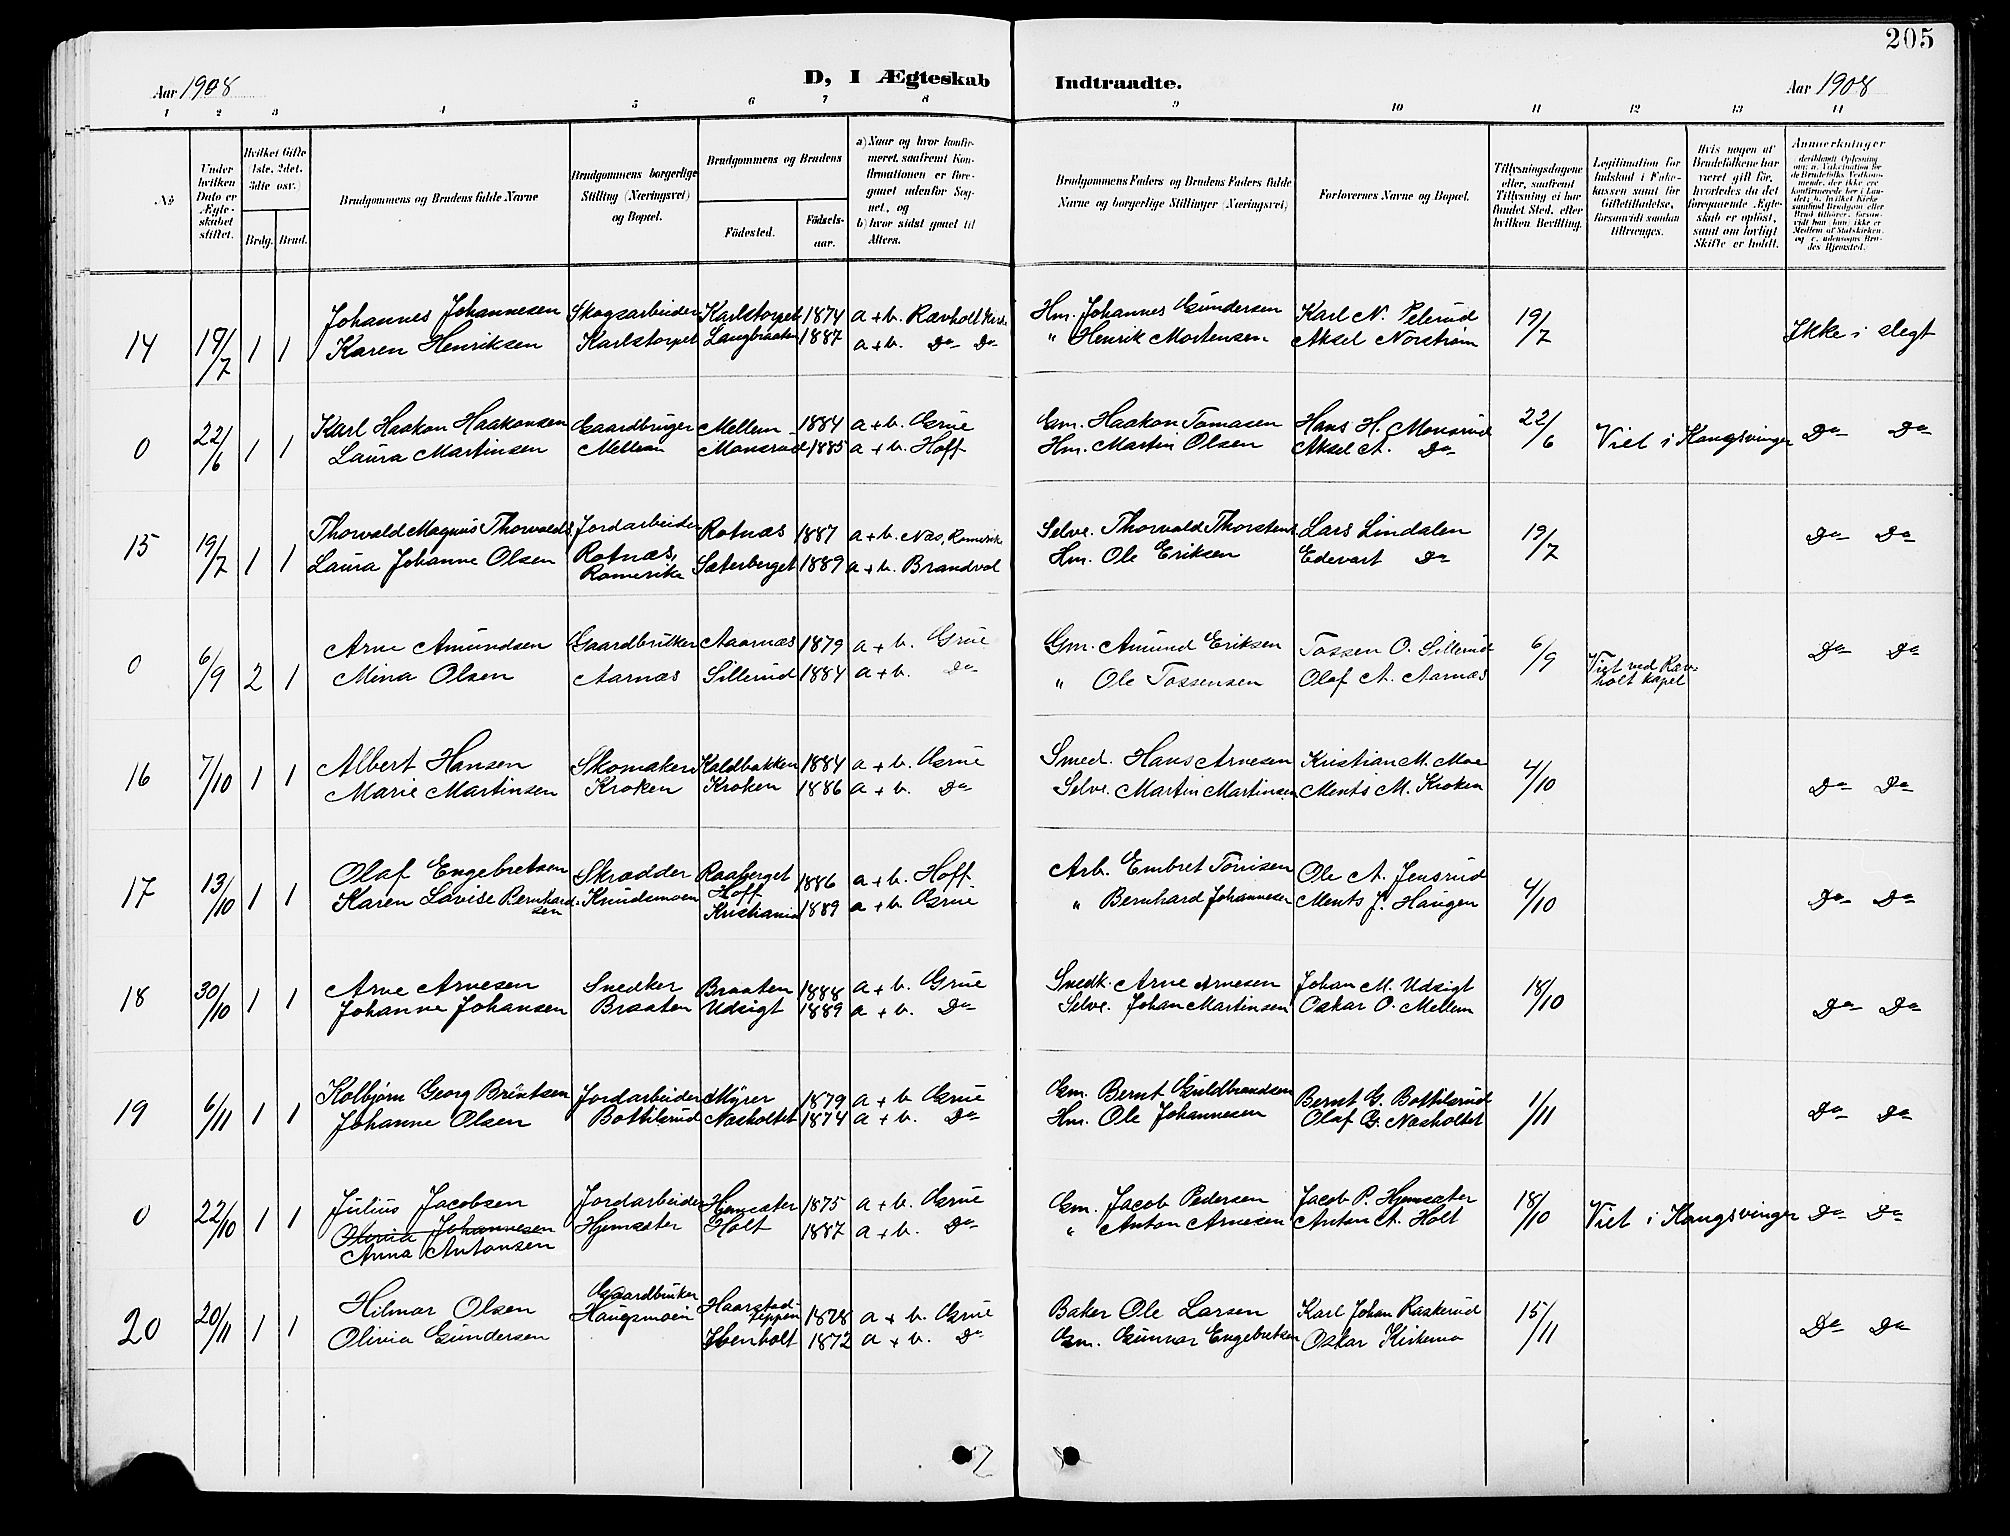 205
Aar 1908
D, I Ægteskab
Indtraadte.
Aar 1908
1 2 3 4 5 6 7 8 9 10 11 12 13 14
No
Under hvilken Dato er Ægteskabet stiftet.
Hvilket Gifte (1ste, 2det, 3die osv.)
Brdg. Brud.
Brudgommens og Brudens fulde Navne
Brudgommens borgerlige Stilling (Næringsvei) og Bopæl.
Brudgommens og Brudens
Fødested. Fødselsaar.
a) Naar og hvor konfirmeret, saafremt Konfirmationen er foregaaet udenfor Sognet, og
b) hvor sidst gaaet til Alters.
Brudgommens Faders og Brudens Faders fulde Navne og borgerlige Stillinger (Næringsvei)
Forlovernes Navne og Bopæl.
Tillysningsdagene eller, saafremt Tillysning ei har fundet Sted, efter hvilken Bevilling.
Legitimation for Indskud i Enkekassen samt for Giftetilladelse, forsaavidt saadan tiltrænges.
Hvis nogen af Brudefolkene har været gift før, hvorledes da det foregaaende Ægteskab er opløst, samt om lovligt Skifte er holdt.
Anmerkninger
14 19/7 1 1 Johannes Johannesen Skogsarbeider Karlstorpet 1874 a + b. Rævholt Hm. Johannes Gundersen Karl N. Pelerud 19/7 Ikke i slegt
Karen Henriksen Karlstorpet Langbraaten 1887 a + b. Do Do " Henrik Mortensen Aksel Norstrøm
0 22/6 1 1 Karl Haakon Haakonsen Gaardbruger Mellem 1884 a + b. Grue Gm. Haakon Tomasen Hans H. Monsrud 22/6 Viet i Kongsvinger Do Do
Laura Martinsen Mellem Monsrud 1885 a + b. Hoff Hm. Martin Olsen Aksel A. Do
15 19/7 1 1 Thorvald Magnus Thorvalds. Jordarbeider Rotnæs 1887 a + b. Næs, Romerik Selve. Thorvald Thorstens. Lars Lindalen 19/7 Do Do
Laura Johanne Olsen Rotnæs, Romerike Sæterberget 1889 a + b. Brandval Hm. Ole Eriksen Edevart Do
0 6/9 2 1 Arne Amundsen Gaardbruker Aaarnæs 1879 a + b. Grue Gm. Amund Eriksen Tossen O. Sillerud 6/9 Viet ved Rævholt kapel Do Do
Mina Olsen Aarnæs Sillerud 1884 a + b. Do " Ole Tossensen Olaf A. Aarnæs
16 7/10 1 1 Albert Hansen Skomaker Kaldbakken 1884 a + b. Grue Smed. Hans Arnesen Kristian M. Moe 4/10 Do Do
Marie Martinsen Kroken Kroken 1886 a + b. Do Selve. Martin Martinsen Ments M. Kroken
17 13/10 1 1 Olaf Engebretsen Skrædder Raaberget Hoff 1886 a + b. Hoff Arb. Embret Tønisen Ole A. Jensrud 4/10 Do Do
Karen Lovise Bernhardsen Knudsmoen Kristiania 1889 a + b. Grue " Bernhard Johannesen Ments J. Haugen
18 30/10 1 1 Arne Arnesen Snedker Braaten 1888 a + b. Grue Snedk. Arne Arnesen Johan M. Udsigt 18/10 Do Do
Johanne Johansen Braaten Udsigt 1889 a + b. Do Selve. Johan Martinsen Oskar O. Mellem
19 6/11 1 1 Kolbjørn Georg Berntsen Jordarbeider Myrer 1879 a + b Grue Gm. Bernt Guldbrandsen Bernt G. Bottilsrud 1/11 Do Do
Johanne Olsen Bottilsrud Næsholtet 1874 a + b. Do Hm. Ole Johannesen Olaf G. Næsholtet
0 22/10 1 1 Julius Jacobsen Jordarbeider Hjemsæter 1875 a + b. Grue Gm. Jacob Pedersen Jacob P. Hjemsæter 18/10 Viet i Kongsvinger Do Do
Olivia Johannesen Hjemsæter Holt 1887 a + b. Do " Anton Arnesen Anton A. Holt
Anna Antonsen
20 20/11 1 1 Hilmar Olsen Gaardbruker Haugsmoen Haarstadseppen 1878 a + b. Grue Baker Ole Larsen Karl Johan Raakerud 15/11 Do Do
Olivia Gundersen Ibenholt 1872 a + b. Do Gm. Gunnar Engebretsen Oskar Kirkemo